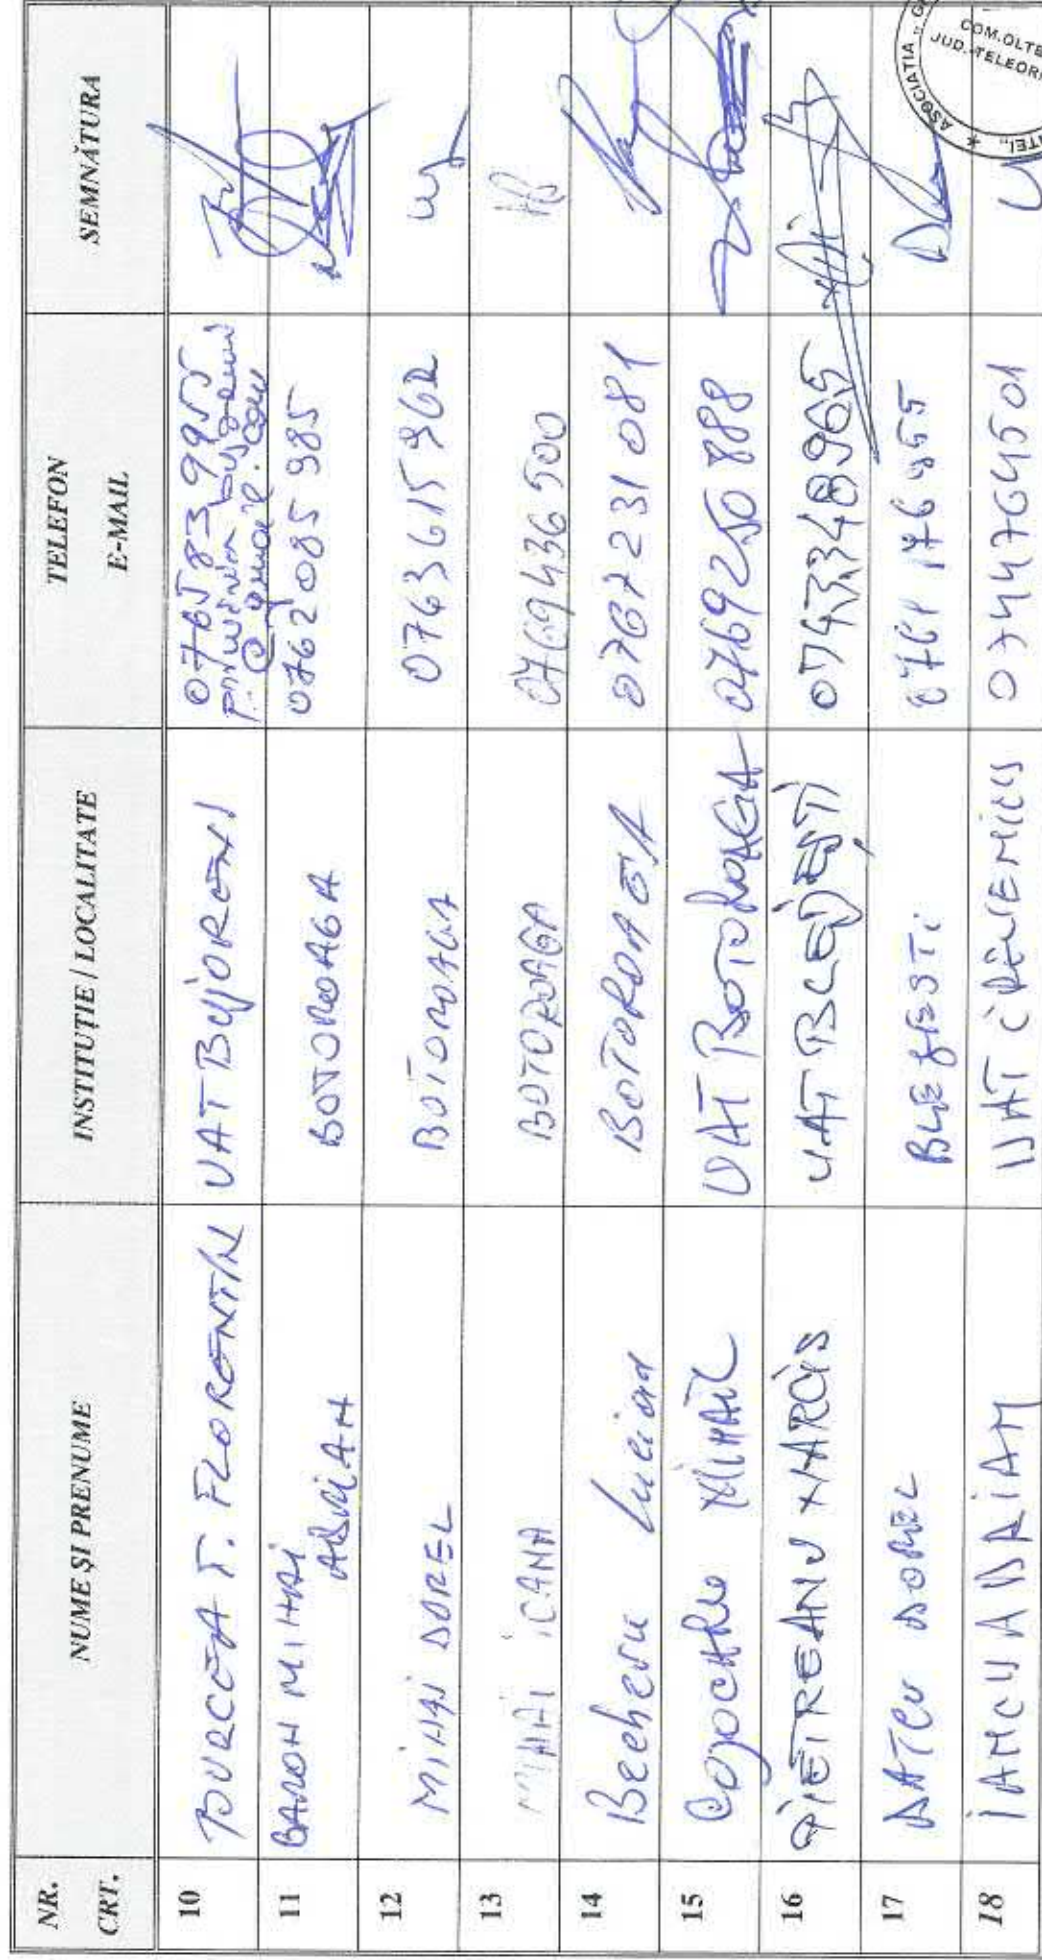 NR. CRT. NUME ȘI PRENUME INSTITUȚIE / LOCALITATE TELEFON E-MAIL SEMNĂTURA
10 BURCEA T. FLORENTIN UAT BUJORENI 0765839955
@gmail.com
11 BARON MIHAI ADRIAN BOTOROAGA 0762085985
12 MIHAI DOREL BOTOROAGA 0763615962
13 MIHAI ICANA BOTOROAGA 0769436500
14 Becheru Lucian BOTOROAGA 0767231081
15 Cojocaru MIHAIL UAT BOTOROAGA 0769250888
16 PIETREANU NARCIS UAT BLEJEȘTI 0743348965
17 DATCU DOREL BLEJESTI
18 IANCU ADRIAN UAT CREVENICU 0744764501
ASOCIATIA
COM.OLTE
JUD.-TELEOR